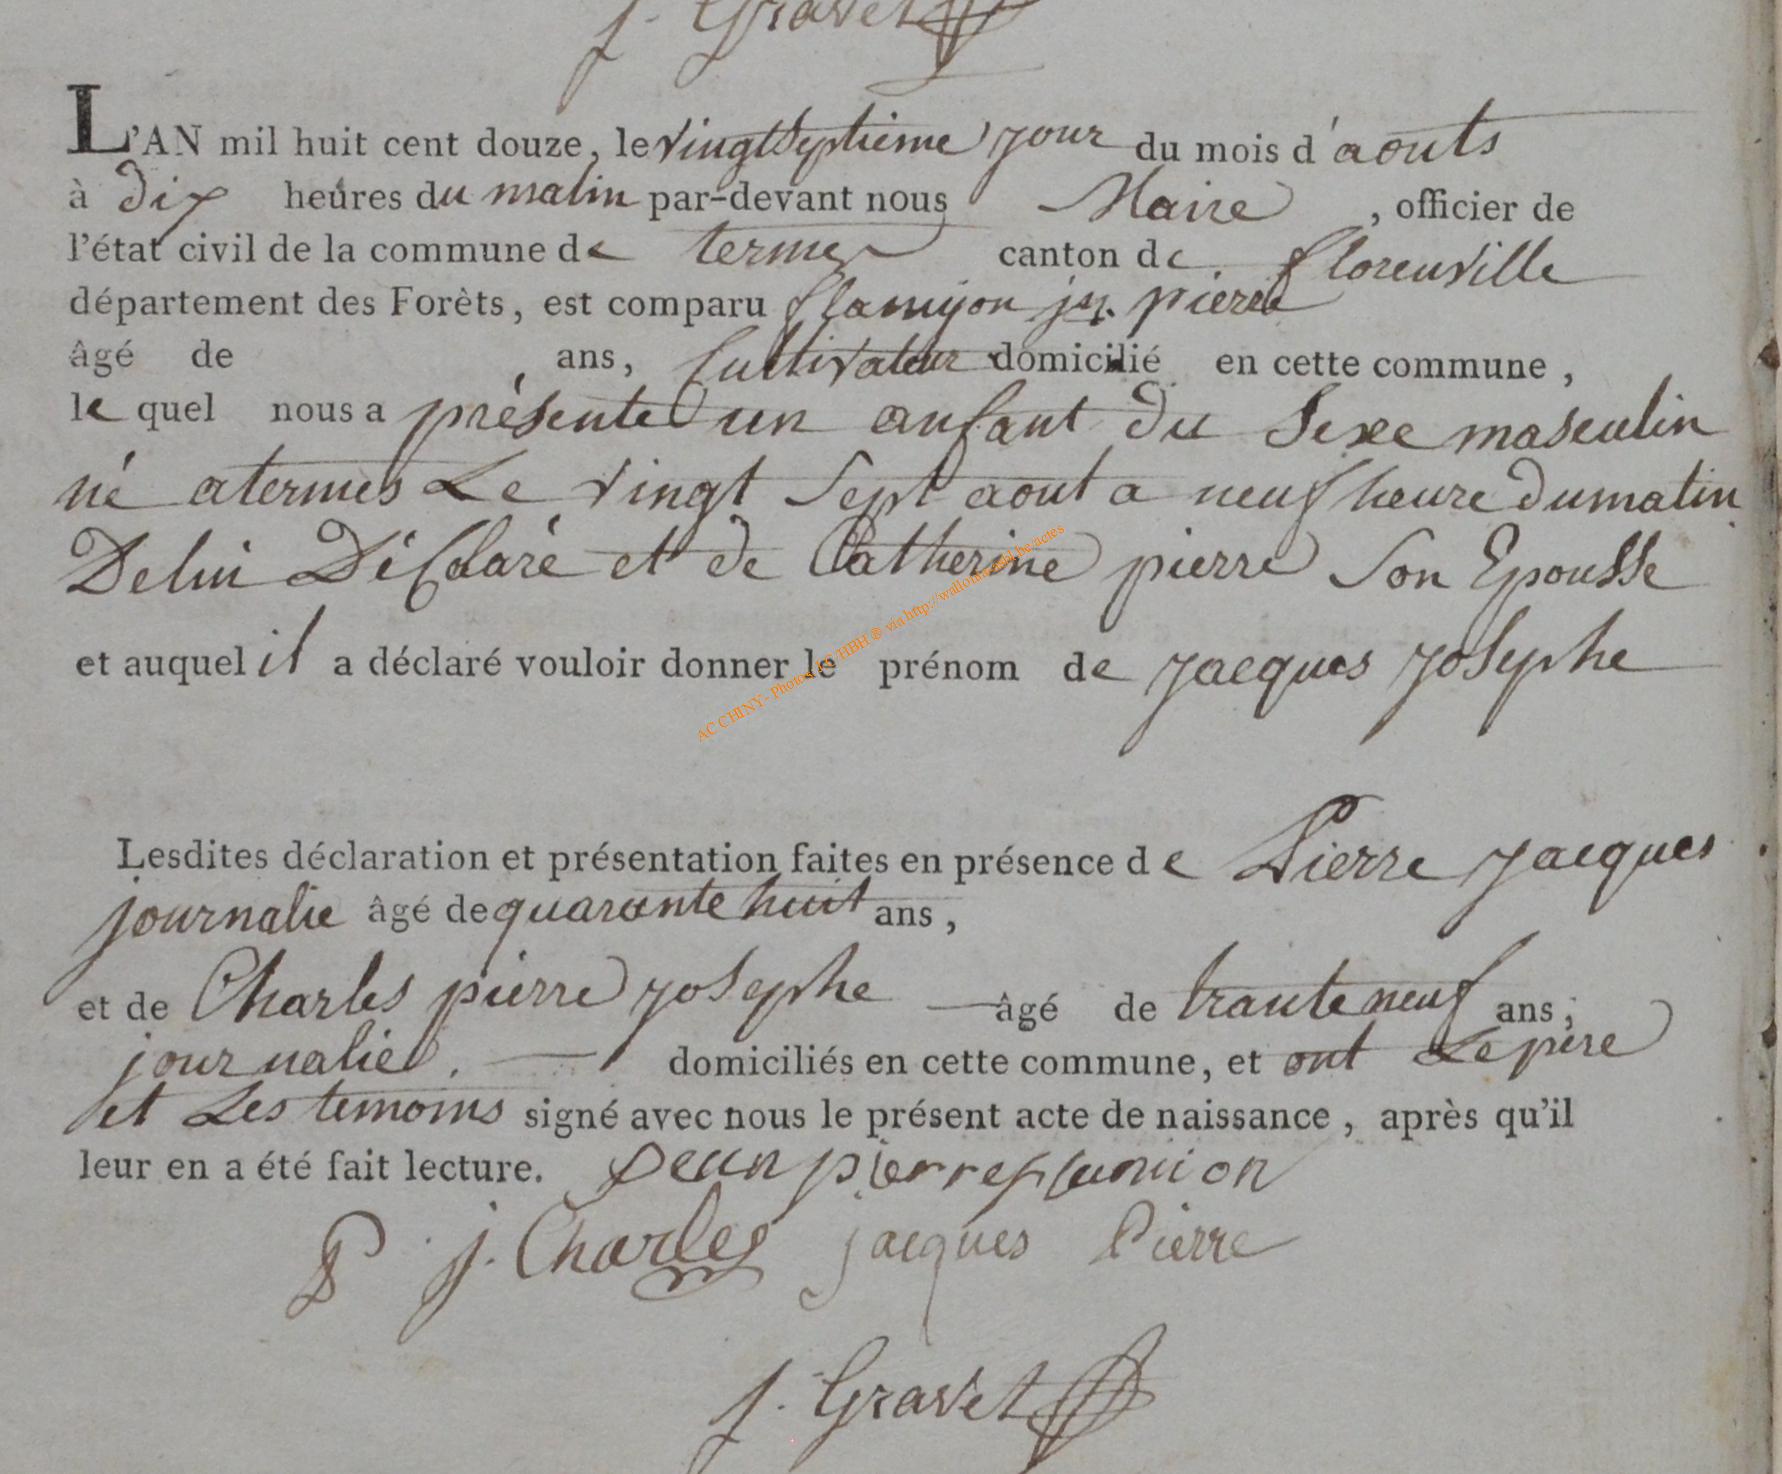 j. Gravet
L'AN mil huit cent douze, le vingtseptieme jour du mois d'aouts
à dix heures du matin par-devant nous Maire , officier de
l'état civil de la commune de termes canton de florenville
département des Forêts, est comparu flamijon jn. pierre
âgé de , ans, Cultivateur domicilié en cette commune ,
le quel nous a présenté un anfant du Sexe masculin
né atermes Le vingt Sept aout a neuf heure dumatin
Delui Déclaré et de Catherine pierre Son Epousse
et auquel il a déclaré vouloir donner le prénom de jacques josephe
AC CHINY - Photos LC HBH ® via http://wallonia.asbl.be/actes
Lesdites déclaration et présentation faites en présence de Pierre jacques
journalie âgé de quarante huit ans ,
et de Charles pierre josephe âgé de trante neuf ans ;
journalie. domiciliés en cette commune, et ont Le pere
et Les temoins signé avec nous le présent acte de naissance , après qu'il
leur en a été fait lecture. Jean pierre flamion
P j. Charles jacques Pierre
j. Gravet